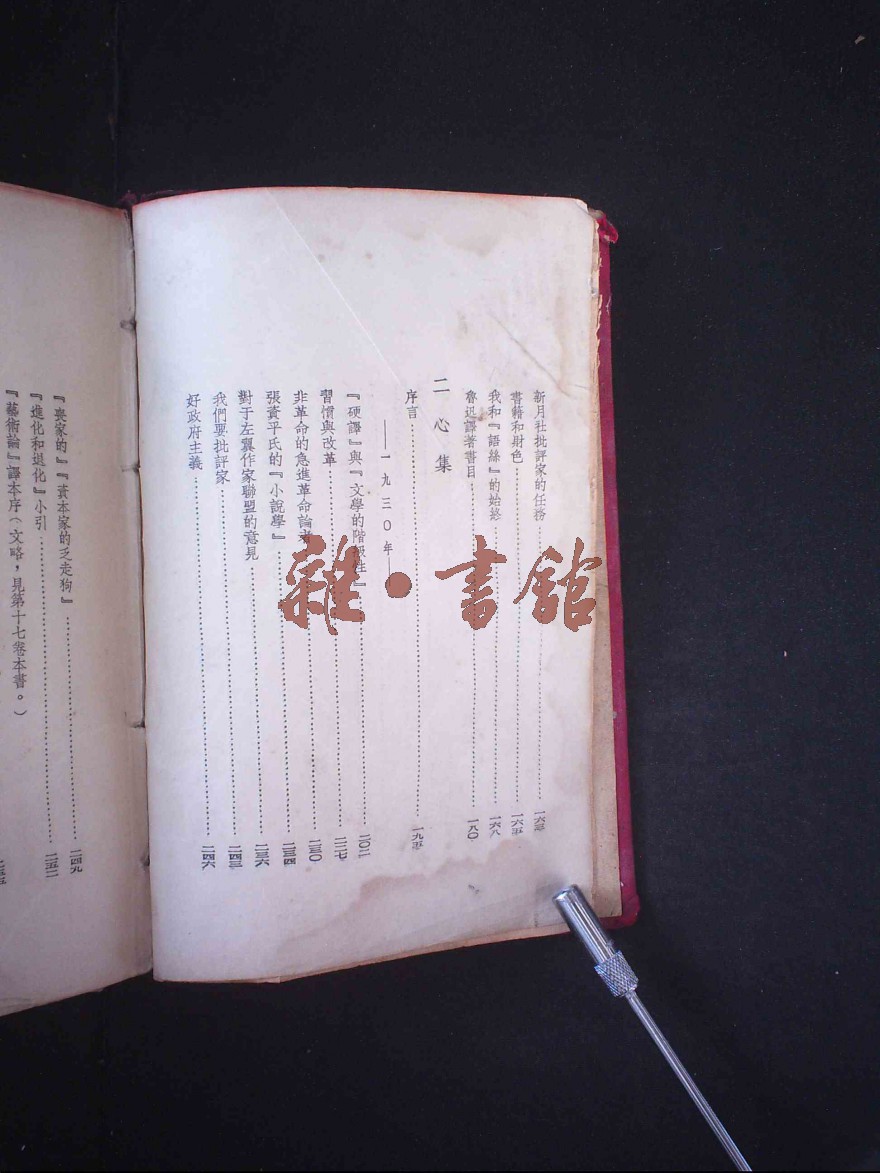 新月社批評家的任務……一六三
書籍和財色……一六五
我和『語絲』的始終……一六八
魯迅譯著書目……一八〇
二心集
序言……一九五
——一九三〇年——
『硬譯』與『文學的階級性』……二〇二
習慣與改革……二二七
非革命的急進革命論者……二三〇
張資平氏的『小說學』……二三四
對于左翼作家聯盟的意見……二三六
我們要批評家……二四三
好政府主義……二四六
『喪家的』『資本家的乏走狗』……二四九
『進化和退化』小引……二五二
『藝術論』譯本序（文略，見第十七卷本書。）
雜·書館